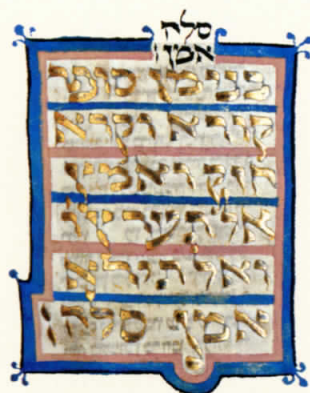 סלה
אמן
בנימן סופר
קורא וקרא
חזק ואמץ
אל
ואל תירא
אמן סלה: